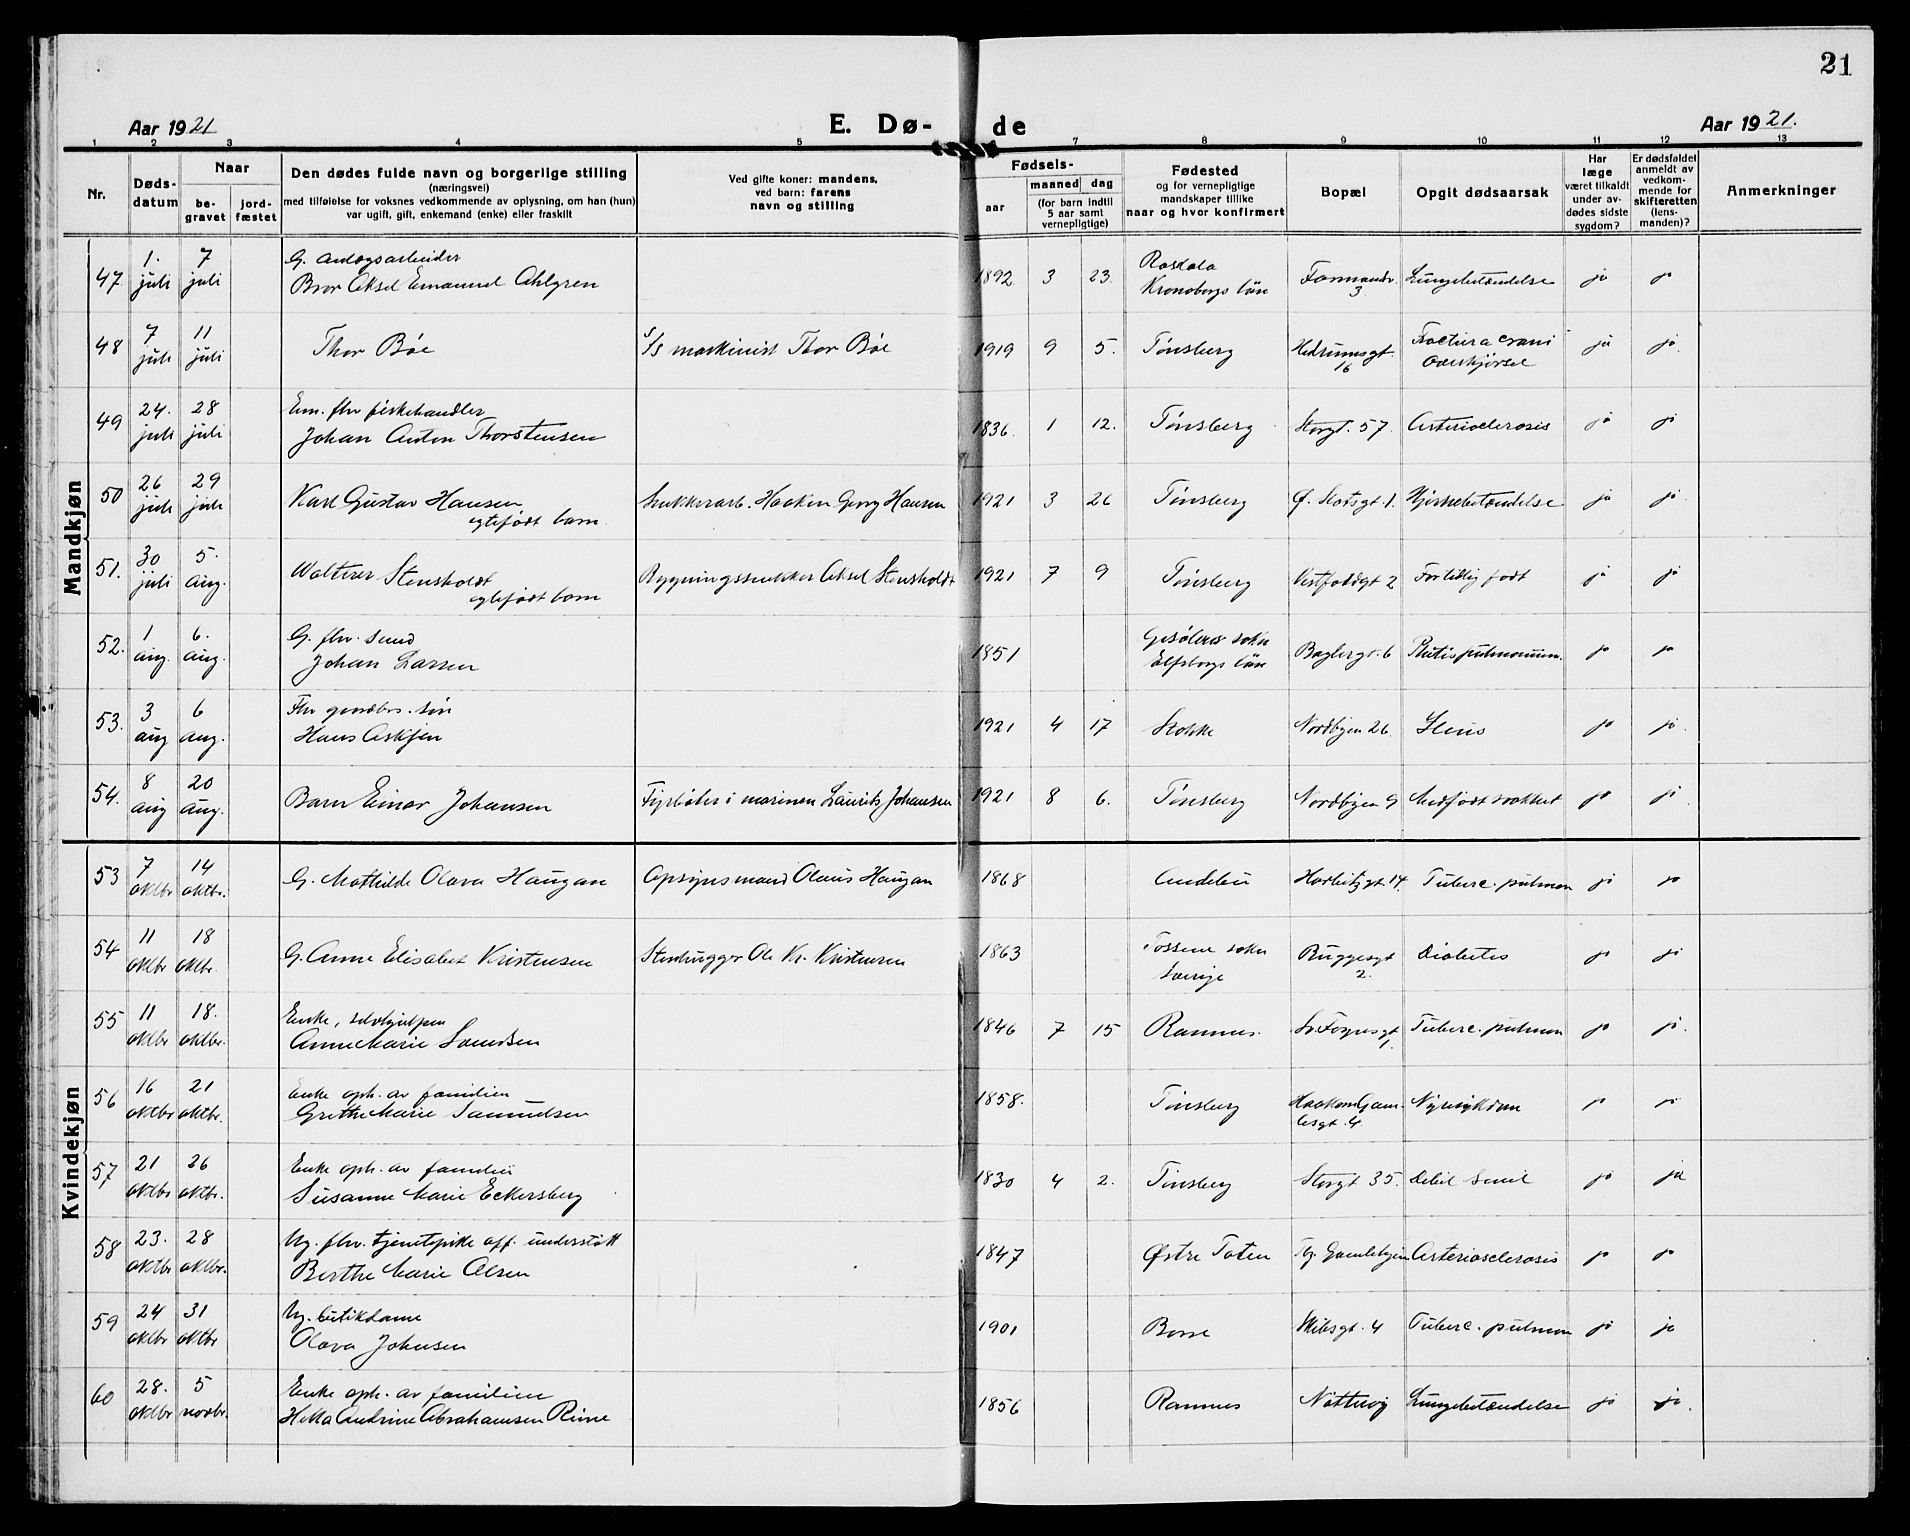 21
Aar 1921
E. Dø-
de
Aar 1921.
1
2
3
4
5
7
8
9
10
11
12
13
Nr.
Døds-
datum
Naar
be-
gravet
jord-
fæstet
Den dødes fulde navn og borgerlige stilling
(næringsvei)
med tilføielse for voksnes vedkommende av oplysning, om han (hun)
var ugift, gift, enkemand (enke) eller fraskilt
Ved gifte koner: mandens,
ved barn: farens
navn og stilling
Fødsels-
aar
maaned
dag
(for barn indtil
5 aar samt
vernepligtige)
Fødested
og for vernepligtige
mandskaper tillike
naar og hvor konfirmert
Bopæl
Opgit dødsaarsak
Har
læge
været tilkaldt
under av-
dødes sidste
sygdom?
Er dødsfaldet
anmeldt av
vedkom-
mende for
skifteretten
(lens-
manden)?
Anmerkninger
Mandkjøn
47. 1. juli 7 juli
G. anlægsarbeider
Bror Aksel Emanuel Ahlgren
1892 3 23.
Kronobergs län
3
Lungebetændelse ja ja
48 7 juli 11 juli
Thor Bøe
S/S maskinist Thor Bøe
1919 9 5. Tønsberg
Hedrumsgt. 16
Fractura crani
Overkjørsel
ja ja.
49 24. juli 28 juli
Em. fhv fiskehandler
Johan Anton Thorstensen
1836. 1 12. Tønsberg Storgt. 57. Arterioclerosis ja ja
50 26 juli 29 juli
Karl Gustav Hansen
egtefødt barn.
Snekkerarb. Haakon Georg Hansen
1921 3 26 Tønsberg Ø. Slotsgt. 1. Hjernebetændelse ja ja.
51. 30 juli 5. aug.
Stensholdt
egtefødt barn
Bygningssnekker Aksel Stensholdt
1921 7 9 Tønsberg Vestfoldgt 2 Fortidlig født ja ja
52. 1 aug. 6. aug.
G. fhv. smed
Johan Larsen
1851
Elfsborgs län
Baglergt. 6 pulmonum. ja ja
53. 3 aug 6 aug.
Fhv gaardbr. søn
Hans Askjen
1921 4 17 Stokke Nordbyen 26. Ileus ja ja.
54. 8 aug 20 aug.
Barn Einar Johansen
Fyrbøter i marinen Laurits Johansen
1921 8 6. Tønsberg Nordbyen 9 Medfødt svakhet ja ja.
Kvindekjøn
53 7 oktbr 14 oktbr.
G. Mathilde Olava Haugan
Opsynsmand Olaus Haugan
1868 Andebu Tuberc. pulmon ja ja
54 11 oktbr 18 oktbr.
G. Anne Elisabet Kristensen
Stenhugger Ole Kr. Kristensen
1863
Tossene sokn
Sverige
Buggesgt
2.
Diabetes ja ja
55 11 oktbr 18. oktbr.
Enke, selvhjulpen
Anne Marie Svendsen
1846 7 15 Ramnes. Sv. Foynsgt 1. Tuberc. pulmon ja ja.
56 16 oktbr 21 oktbr.
Enke oph. av familien
Grethe Marie Samuelsen
1858. Tønsberg
Haakon Gam-
lesgt. 4.
Nyresykdom ja ja
57 21 oktbr 26 oktbr.
Enke oph. av familien
Susanne Marie Eckersberg
1830 4 2. Tønsberg Storgt 35. Debil. senil ja ja
58 23. oktbr 28 oktbr.
Ug. fhv. tjenestpike off. understøtt
Berthe Marie Olsen
1847 Østre Toten Gamlehjem Arteriosclerosis ja ja
59 24 oktbr 31 oktbr
Ug. butikdame
Olava Johnsen
1901 Borre 4 Tuberc. pulmon ja ja
60 28. oktbr 5 novbr.
Enke oph. av familien
Andrine Abrahamsen
1856 Ramnes Nøtterøy Lungebetændelse ja ja.